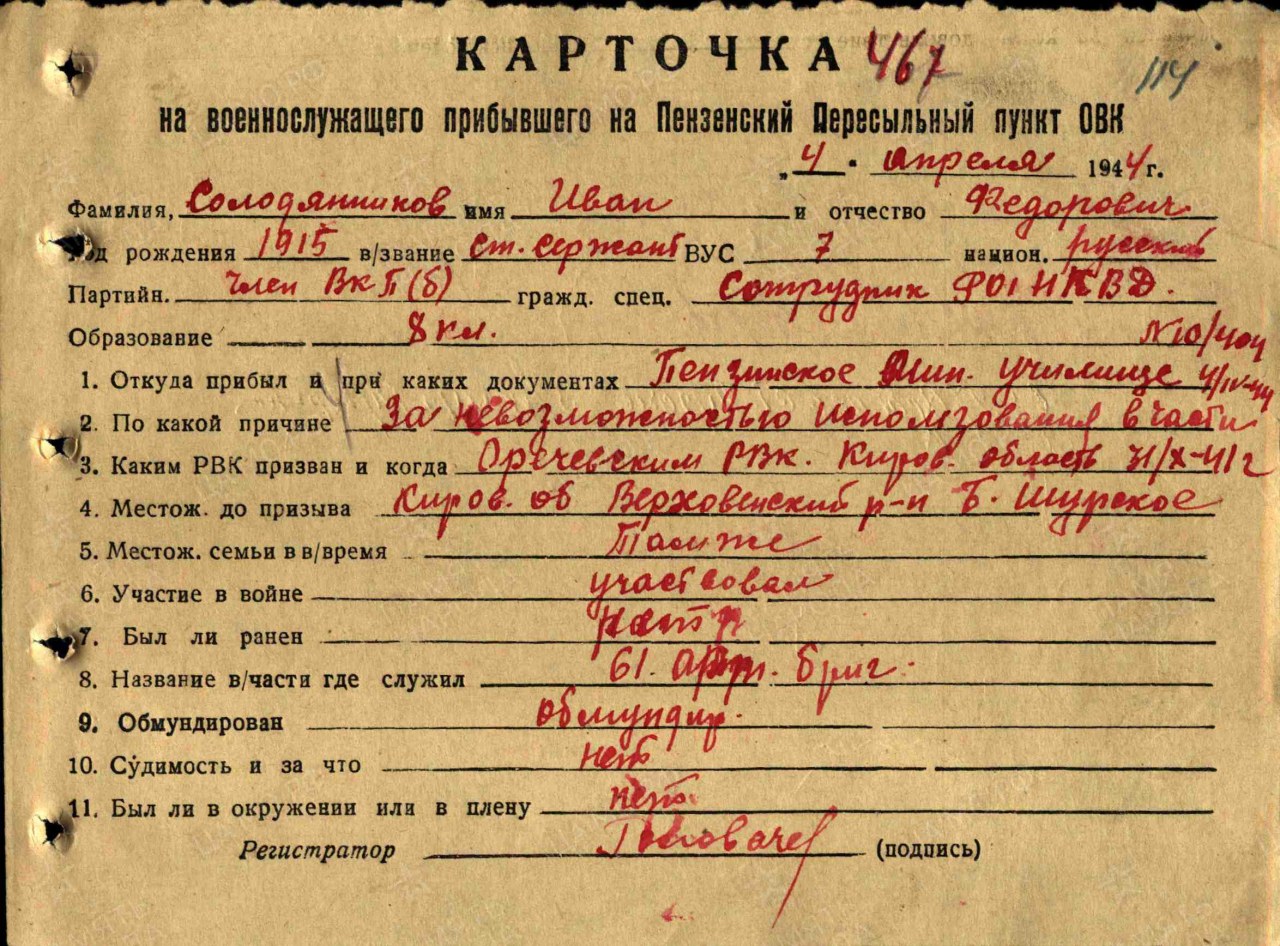 КАРТОЧКА 467 114
на военнослужащего прибывшего на Пензенский Пересыльный пункт ОВК
„ 4 " апреля 1944 г.
Фамилия, Солодянников имя Иван и отчество Федорович
Год рождения 1915 в/звание ст. сержант ВУС 7 национ. русский
Партийн. член ВКП(б) гражд. спец. Сотрудник РОНКВД.
Образование 8 кл. №10/404
1. Откуда прибыл и при каких документах Пензинское Мин. училище 4/IV-44
2. По какой причине За невозможностью использования в части
3. Каким РВК призван и когда Оричевским РВК. Киров. область 31/X-41г
4. Местож. до призыва Киров. об Верховенский р-н Б. Шурское
5. Местож. семьи в в/время Там же
6. Участие в войне участвовал
7. Был ли ранен
8. Название в/части где служил 61. Арт. бриг.
9. Обмундирован обмундир.
10. Судимость и за что нет
11. Был ли в окружении или в плену нет
Регистратор Головачев (подпись)